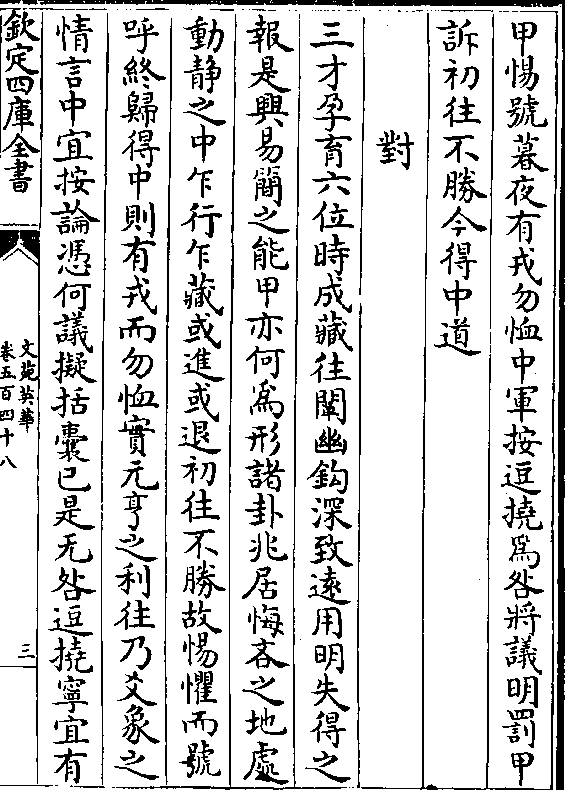 甲惕號暮夜有戎勿恤中軍按逗撓爲咎將議明罰甲
訴初往不勝今得中道
對
三才孕育六位時成藏往闡幽鈎深致遠用明失得之
報是興易簡之能甲亦何爲形諸卦兆居悔吝之地處
動静之中乍行乍藏或進或退初往不勝故惕懼而號
呼終歸得中則有戎而勿恤實元亨之利往乃爻象之
情言中宜按論憑何議擬括囊已是无咎逗撓寧宜有
欽定四庫全書
文苑英華
卷五百四十八
三